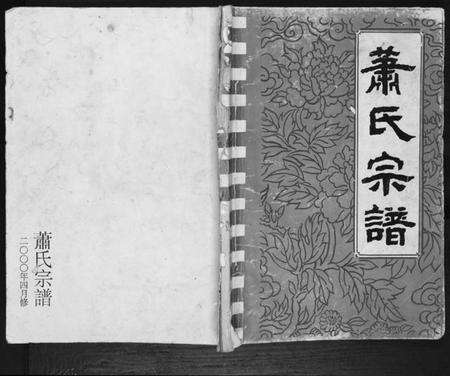 蕭氏宗譜
蕭氏宗譜
二〇〇〇年四月修